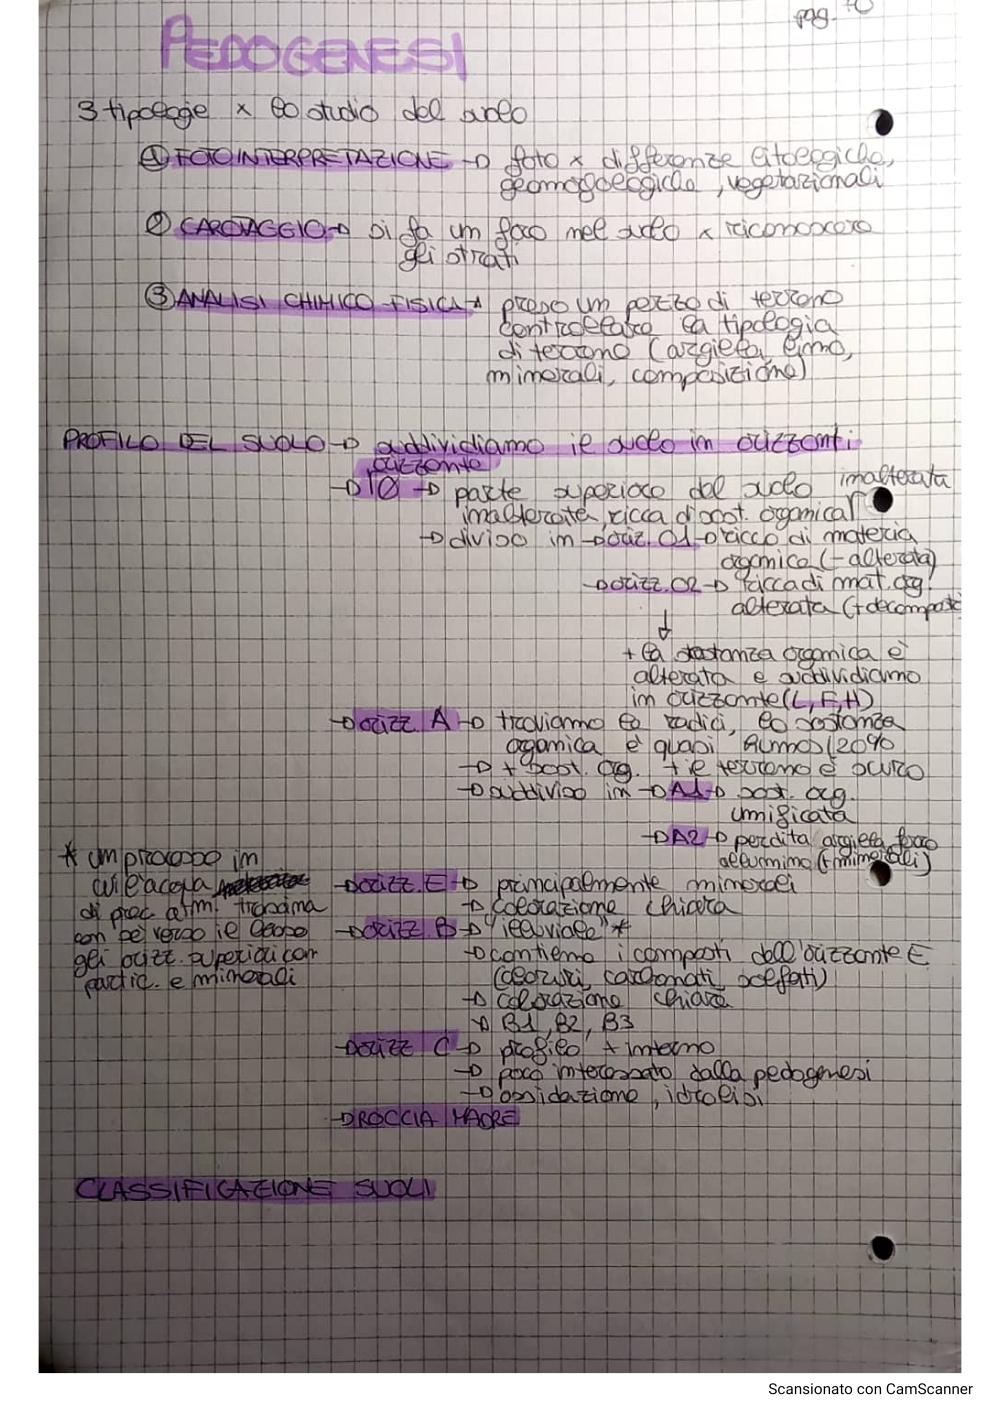 pag. 70
PEDOGENESI
3 tipologie x lo studio del suolo
① FOTOINTERPRETAZIONE → foto x differenze litologiche,
geomorfologiche, vegetazionali
② CAROTAGGIO → si fa un foro nel suolo x riconoscere
gli strati
③ ANALISI CHIMICO FISICA → preso un pezzo di terreno
controllare la tipologia
di terreno (argilla, limo,
minerali, composizione)
PROFILO DEL SUOLO → suddividiamo il suolo in orizzonti
orizzonte
→ O → parte superiore del suolo inalterata
inalterata, ricca di sost. organica
→ diviso in → oriz. O1 → ricco di materia
organica (- alterata)
→ orizz. O2 → ricca di mat. org.
alterata (+ decomposta
↓
+ la sostanza organica è
alterata e suddividiamo
in orizzonte (L, F, H)
→ orizz A → troviamo le radici, la sostanza
organica è quasi humus (20%
→ + sost. org. + il terreno è scuro
→ suddiviso in → A1 → sost. org.
umificata
→ A2 → perdita argilla, ferro
alluminio (+ minerali)
* un processo in
cui l'acqua
di prec. atm. trascina
con sé verso il basso
gli orizz. superiori con
partic. e minerali
→ orizz. E → principalmente minerali
→ colorazione chiara
→ orizz B → "illuviale" *
→ contiene i composti dell'orizzonte E
(cloruri, carbonati, solfati)
→ colorazione chiara
→ B1, B2, B3
→ orizz C → profilo + interno
→ poco interessato dalla pedogenesi
→ ossidazione, idrolisi
→ ROCCIA MADRE
CLASSIFICAZIONE SUOLI
Scansionato con CamScanner